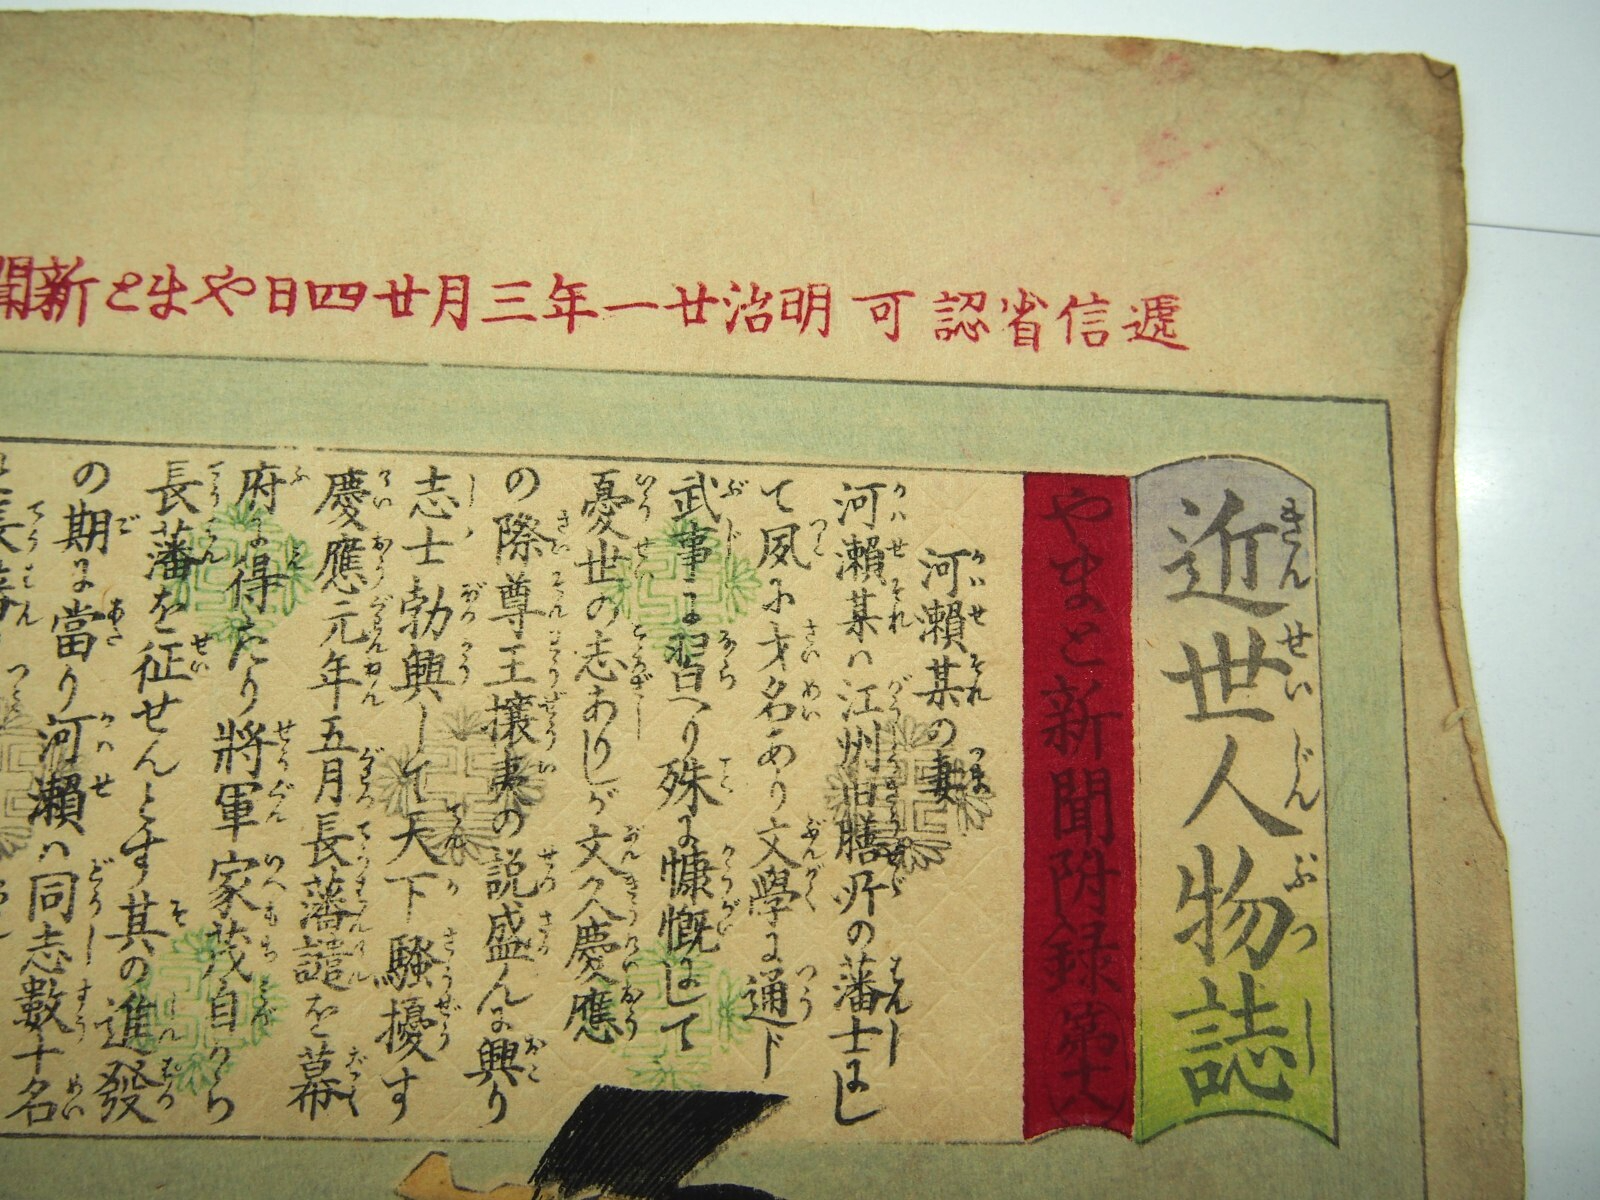 遞信省認可 明治廿一年三月廿四日やまと新聞
近世人物誌
やまと新聞附録第十八
河瀬某の妻
河瀬某ハ江州旧膳所の藩士にし
て夙に才名あり文學に通ド
武事に習へり殊に慷慨にして
憂世の志ありしが文久慶應
の際尊王攘夷の説盛んに興り
志士勃興して天下騒擾す
慶應元年五月長藩譴を幕
府に得たり將軍家茂自から
長藩を征せんとす其の進發
の期に當り河瀬ハ同志數十名